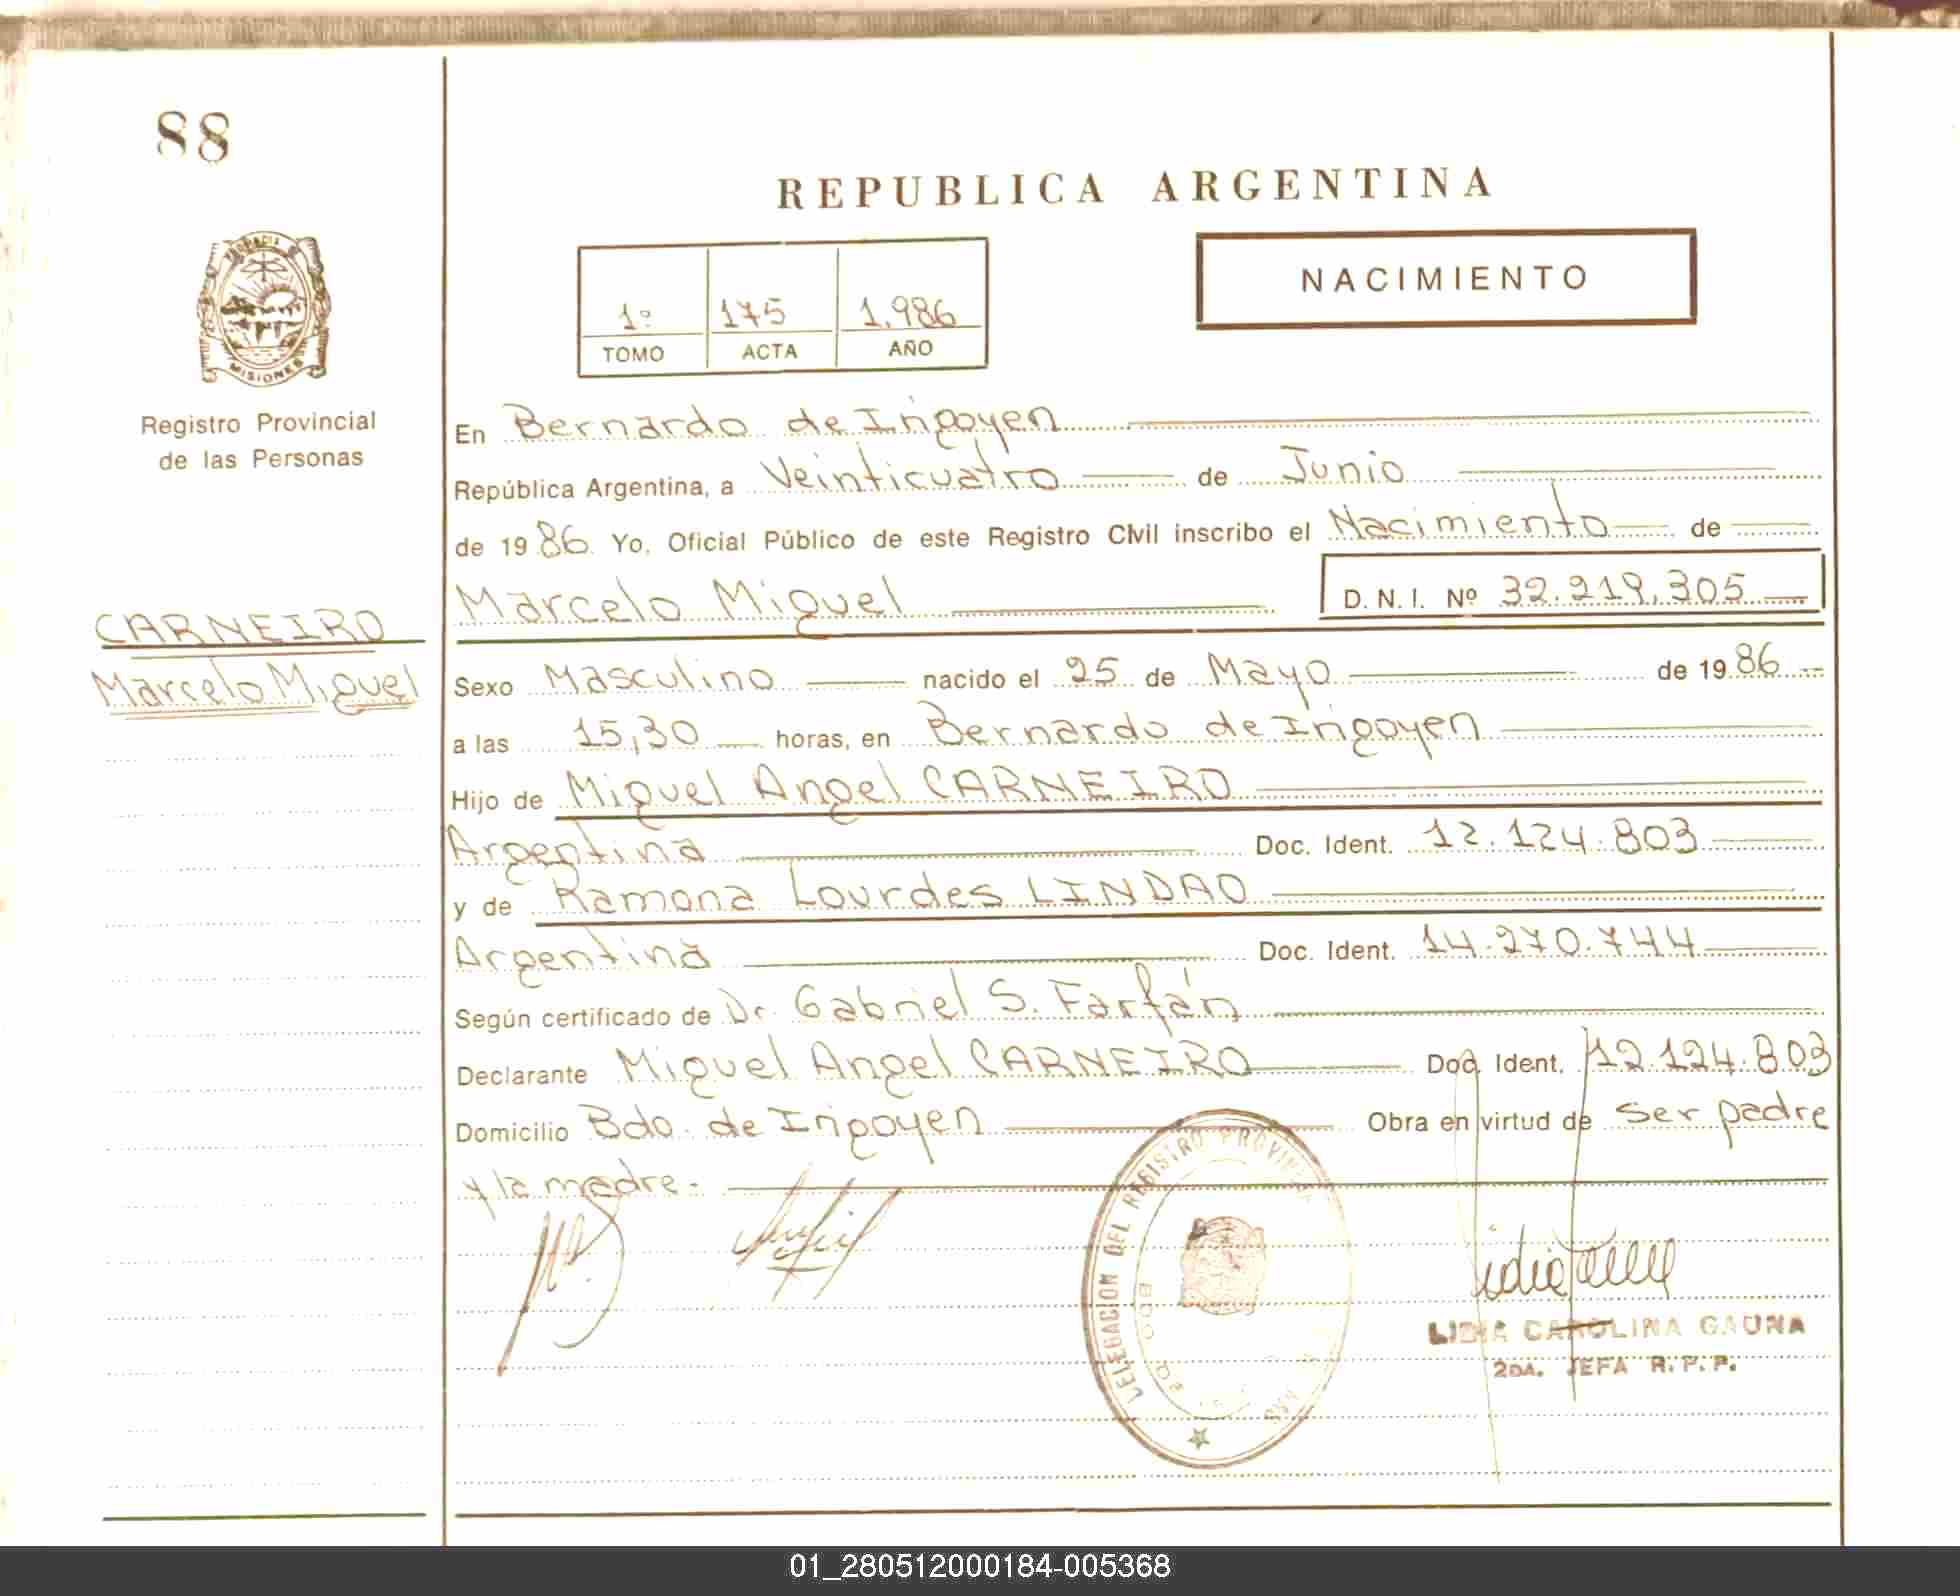 88
REPUBLICA ARGENTINA
NACIMIENTO
1º 175 1.986
TOMO ACTA AÑO
PROVINCIA
MISIONES
Registro Provincial
de las Personas
CARNEIRO
Marcelo Miguel
En Bernardo de Irigoyen
República Argentina, a Veinticuatro de Junio
de 1986. Yo, Oficial Público de este Registro Civil inscribo el Nacimiento de
Marcelo Miguel D. N. I. Nº 32.219.305
Sexo Masculino nacido el 25 de Mayo de 1986
a las 15,30 horas, en Bernardo de Irigoyen
Hijo de Miguel Angel CARNEIRO
Argentina Doc. Ident. 12.124.803
y de Ramona Lourdes LINDAO
Argentina Doc. Ident. 14.270.744
Según certificado de Dr. Gabriel S. Farfán
Declarante Miguel Angel CARNEIRO Doc. Ident. 12.124.803
Domicilio Bdo. de Irigoyen Obra en virtud de Ser padre
y la madre.-
DELEGACION DEL REGISTRO PROVINCIAL
LIDIA CAROLINA GAUNA
2DA. JEFA R.P.P.
01_280512000184-005368